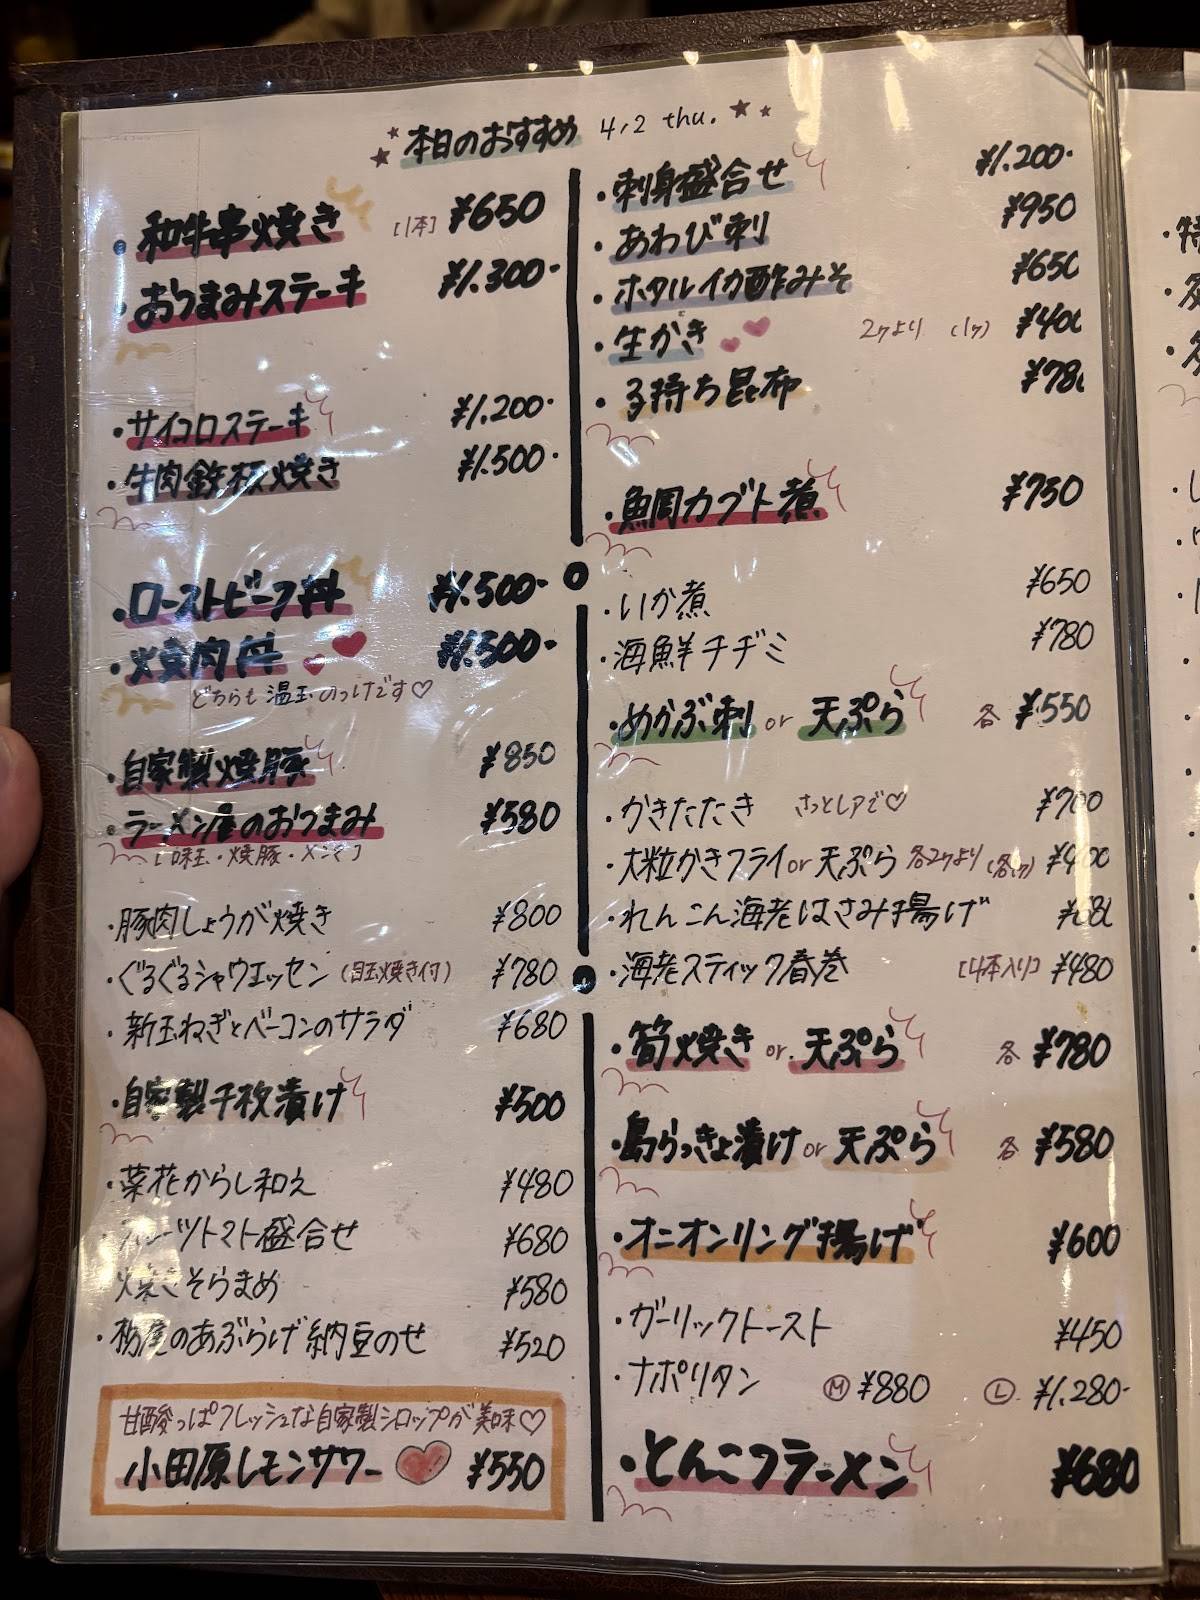 本日のおすすめ 4/2 thu.
・和牛串焼き [1本] ¥650
・おつまみステーキ ¥1.300-
・サイコロステーキ ¥1.200-
・牛肉鉄板焼き ¥1.500-
・ローストビーフ丼 ¥1.500-
・焼肉丼 ¥1.500-
どちらも温玉のっけです♡
・自家製焼豚 ¥850
・ラーメン屋のおつまみ ¥580
[味玉・焼豚・メンマ]
・豚肉しょうが焼き ¥800
・ぐるぐるシャウエッセン (目玉焼き付) ¥780
・新玉ねぎとベーコンのサラダ ¥680
・自家製千枚漬け ¥500
・菜花からし和え ¥480
フルーツトマト盛合せ ¥680
焼きそらまめ ¥580
・栃尾のあぶらげ納豆のせ ¥520
甘酸っぱフレッシュな自家製シロップが美味♡
小田原レモンサワー ¥550
・刺身盛合せ ¥1.200-
・あわび刺 ¥950
・ホタルイカ酢みそ ¥650
・生がき 2ヶより (1ヶ) ¥400
・子持ち昆布 ¥780
・魚周カブト煮 ¥750
・いか煮 ¥650
・海鮮チヂミ ¥780
・めかぶ刺 or 天ぷら 各 ¥550
・かきたたき さっとレアで♡ ¥700
・大粒かきフライor天ぷら 各2ヶより (各1ヶ) ¥400
・れんこん海老はさみ揚げ ¥680
・海老スティック春巻 [4本入り] ¥480
・筍焼き or. 天ぷら 各 ¥780
・島らっきょ漬け or 天ぷら 各 ¥580
・オニオンリング揚げ ¥600
・ガーリックトースト ¥450
・ナポリタン Ⓜ ¥880 Ⓛ ¥1.280-
・とんこつラーメン ¥680